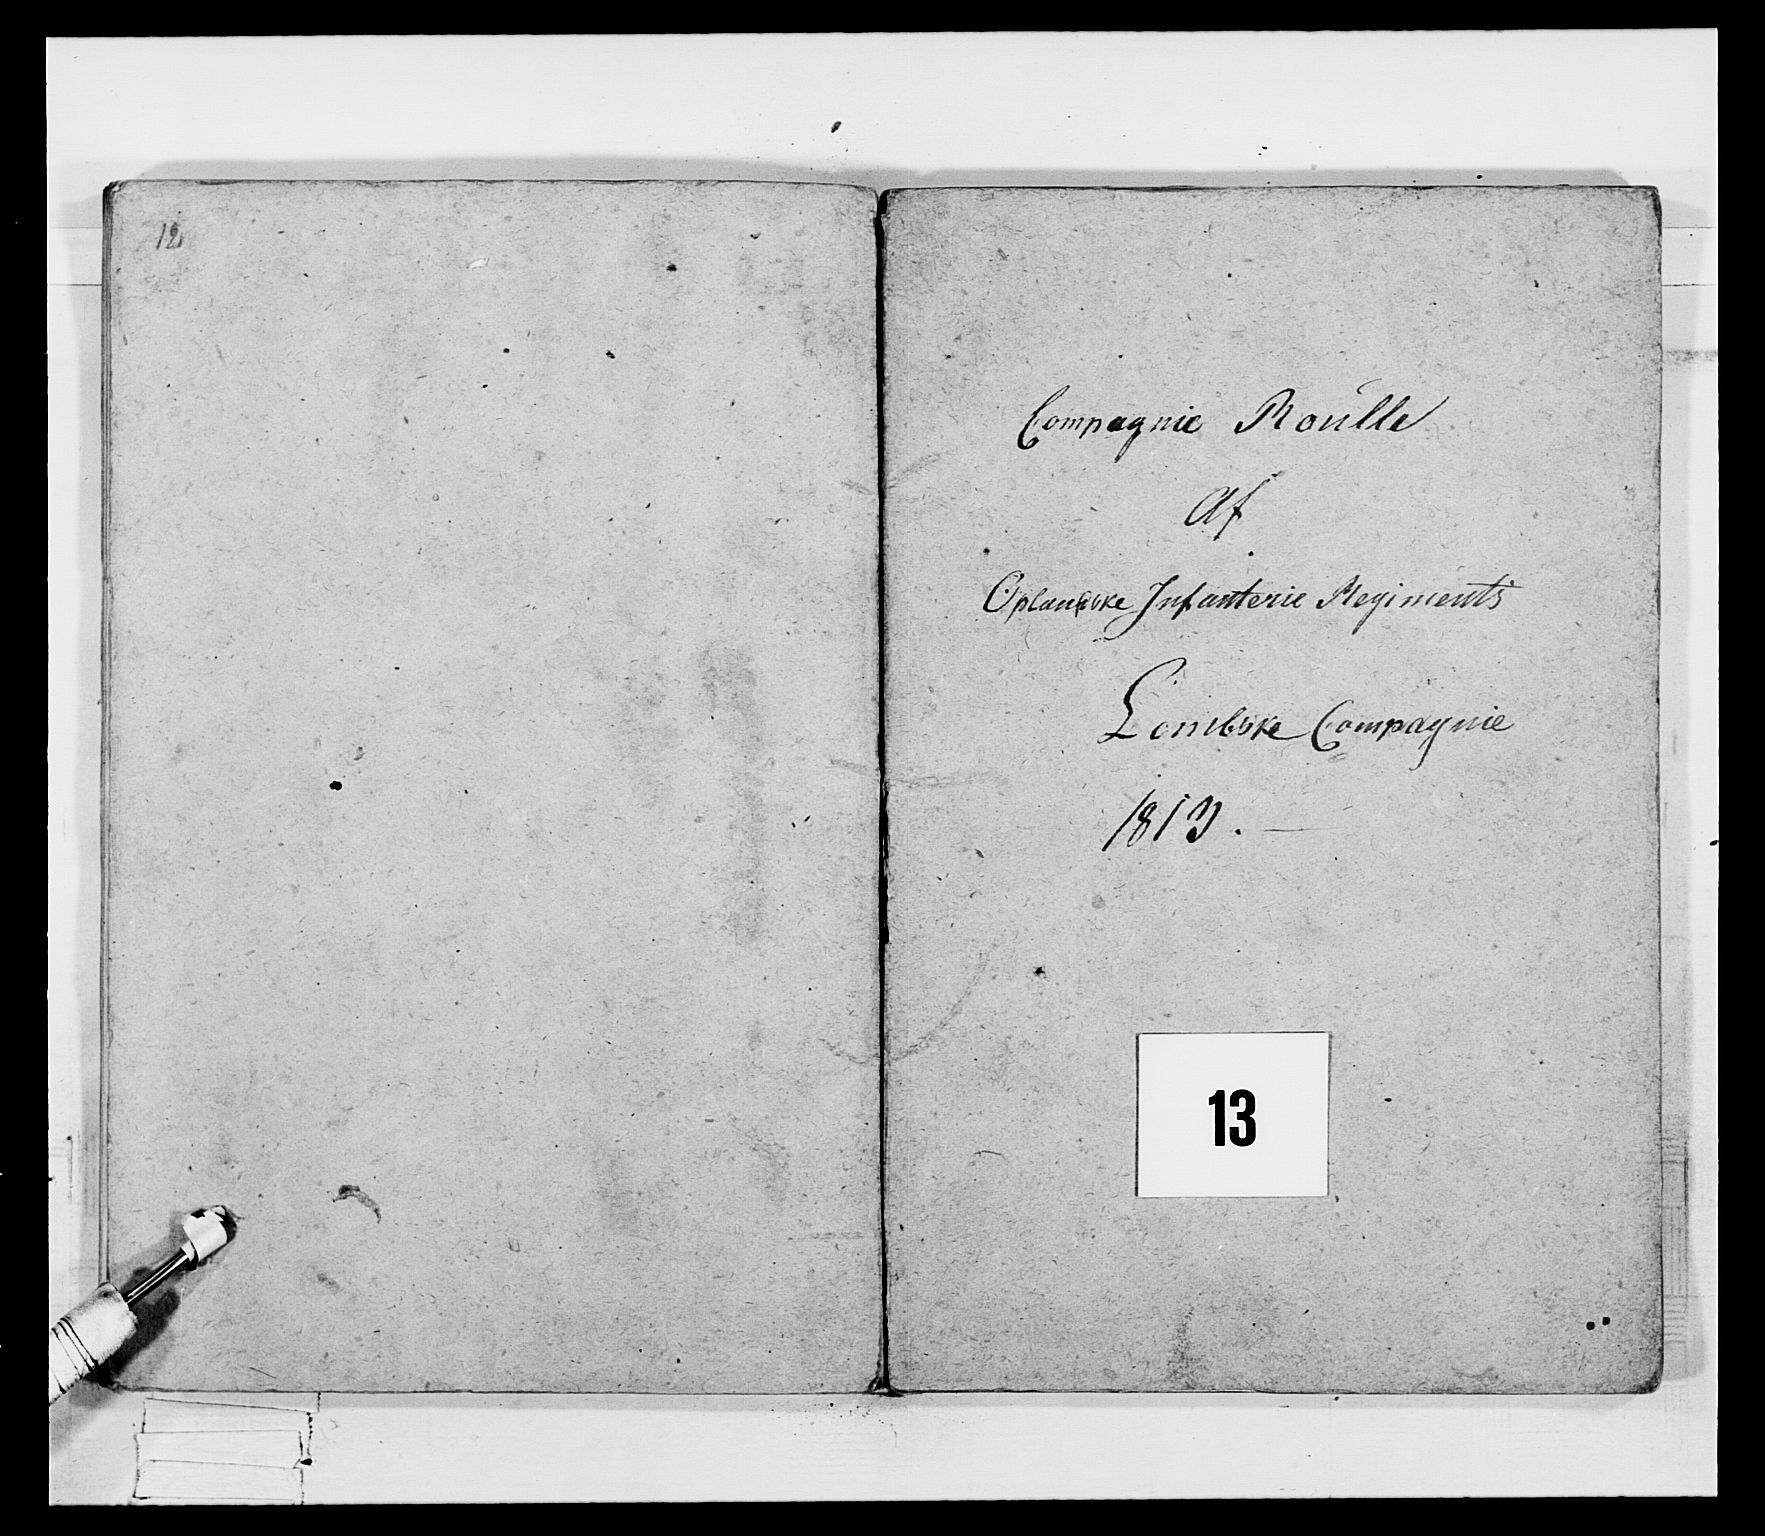 12
Compagnie Roulle
Af
Oplandske Infanterie Regiments
Lombske Compagnie
1813.
13